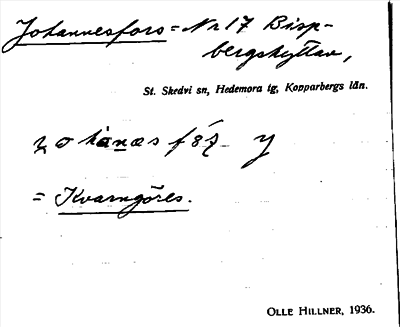 Johannesfors = Nr 17 Bisp-
bergshyttan,
St. Skedvi sn, Hedemora tg, Kopparbergs län.
= Kvarngöres.
OLLE HILLNER, 1936.